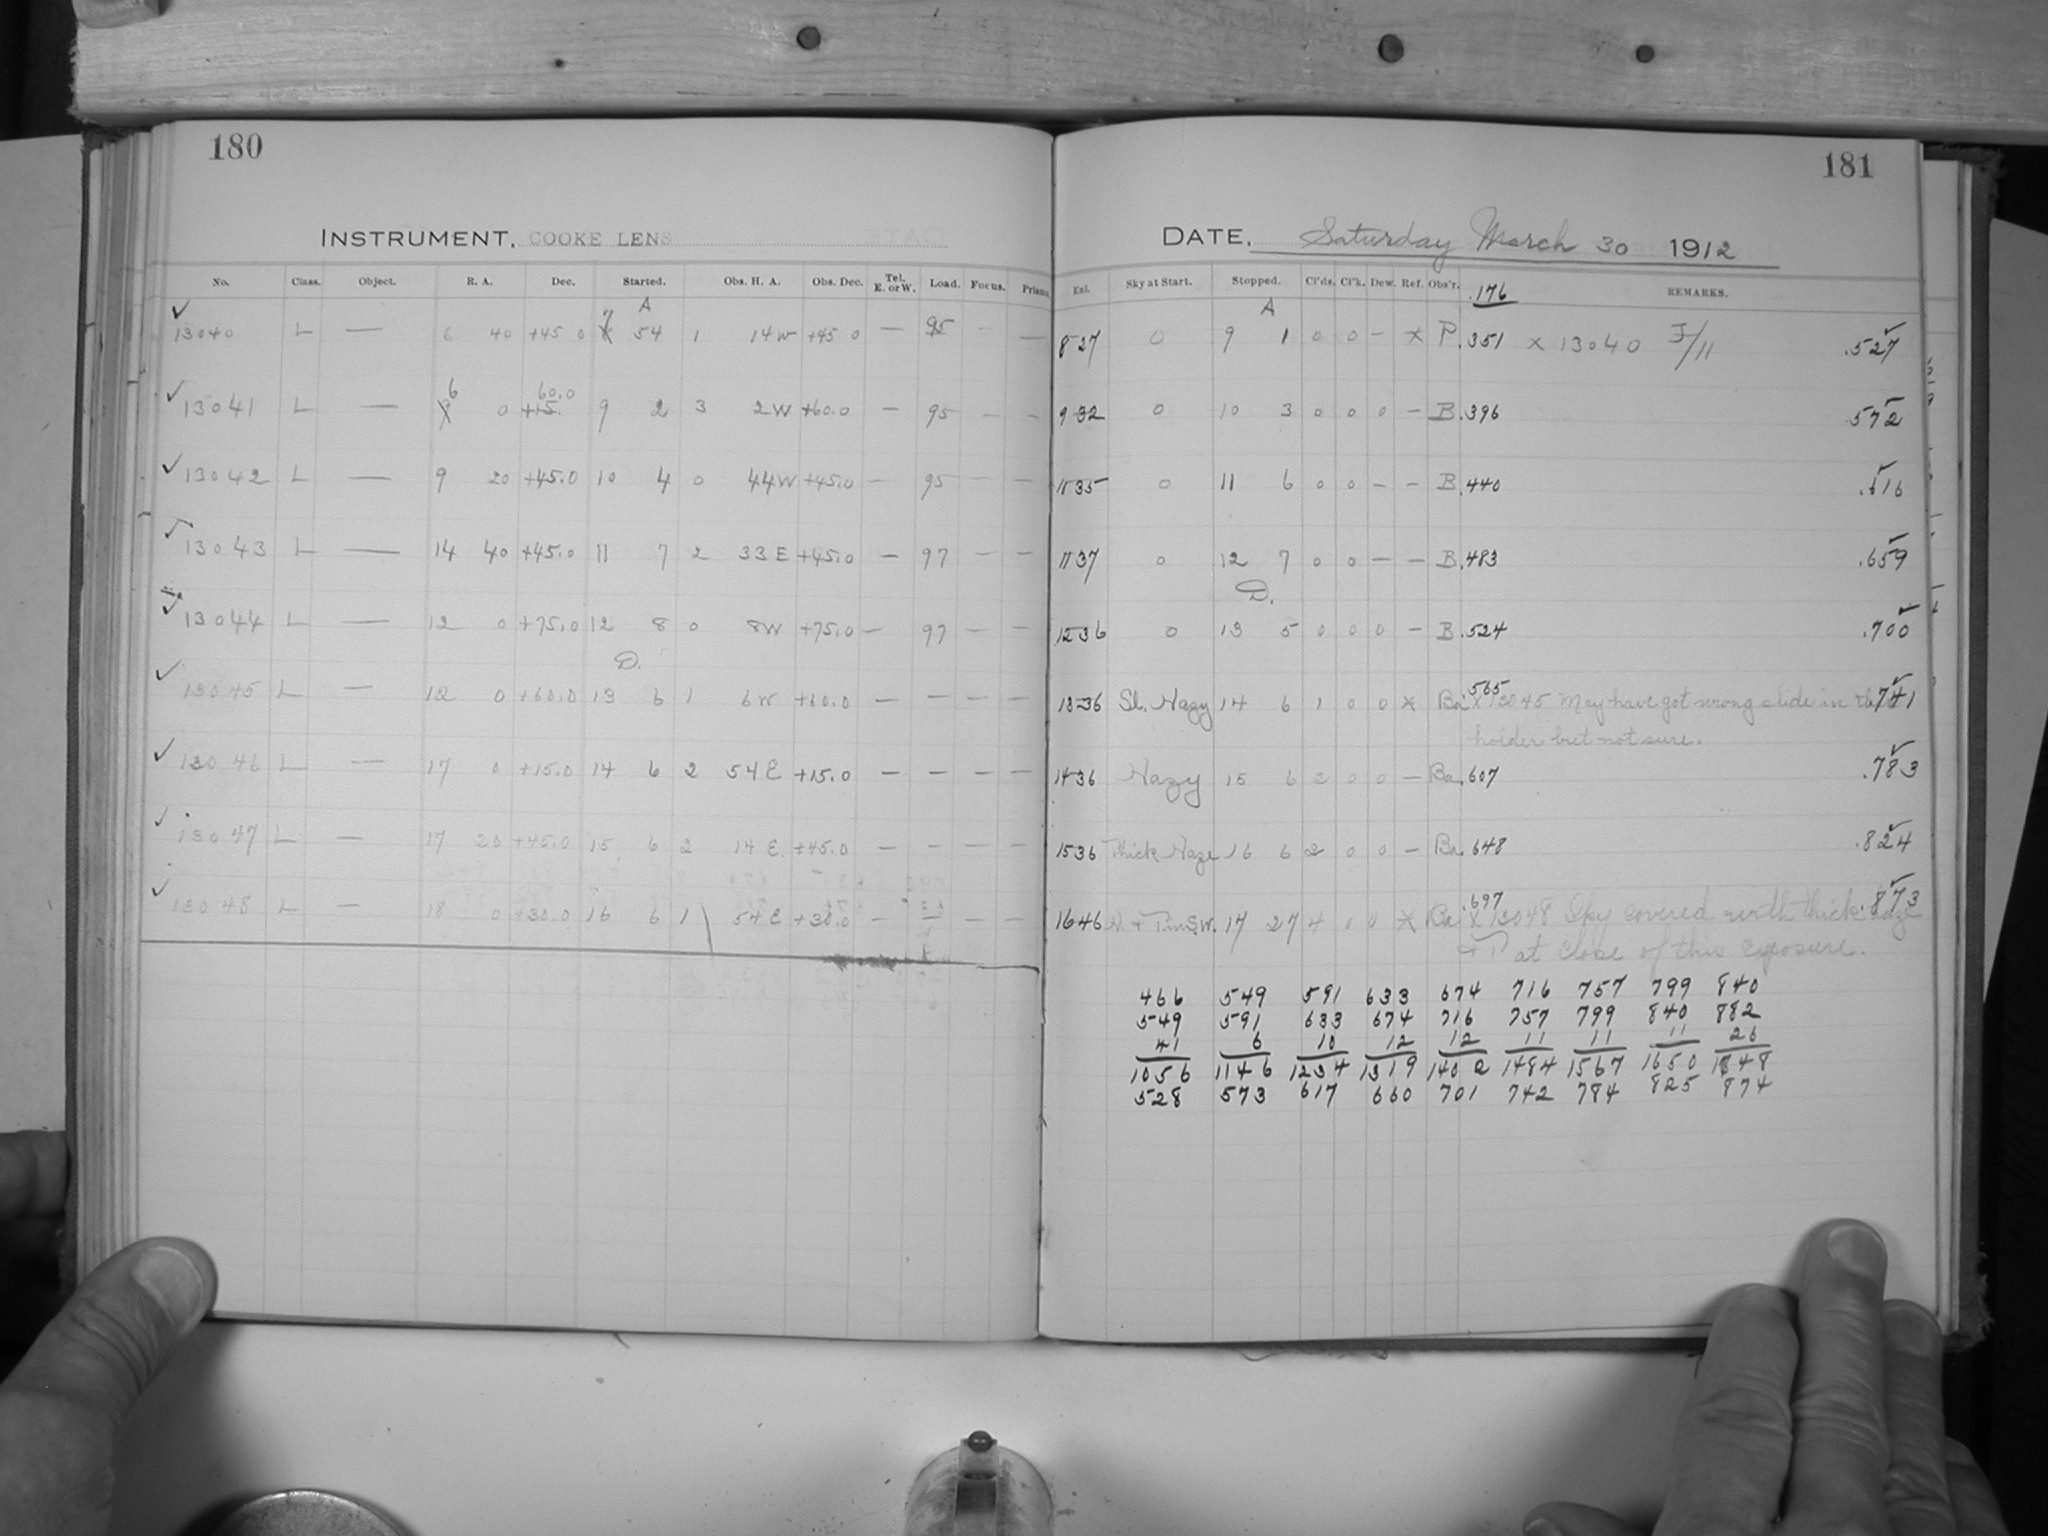 180
181
INSTRUMENT, COOKE LENS
DATE, Saturday March 30 1912
No. Class. Object. R. A. Dec. Started. Obs. H. A. Obs. Dec. Tel. E. or W. Load. Focus. Prisms. Enl. Sky at Start. Stopped. Cl'ds. Cl'k. Dew. Ref. Obs'r. .176 REMARKS.
A A
✓ 13040 L — 6 40 +45 0 7 54 1 14 W +45 0 — 95 - — 827 0 9 1 0 0 — x P .351 x 13040 F/11 .527
✓ 13041 L — 6 0 60.0 +15. 9 2 3 2 W +60.0 — 95 — — 932 0 10 3 0 0 0 — B .396 .572
✓ 13042 L — 9 20 +45.0 10 4 0 44 W +45.0 — 95 — — 1135 0 11 6 0 0 — — B .440 .616
✓ 13043 L — 14 40 +45.0 11 7 2 33 E +45.0 — 97 — — 1137 0 12 7 0 0 — — B .483 .659
D.
✓ 13044 L — 12 0 +75.0 12 8 0 8 W +75.0 — 97 — — 1236 0 13 5 0 0 0 — B .524 .700
D.
✓ 13045 L — 12 0 +60.0 13 6 1 6 W +60.0 — — — — 1336 Sl. Hazy 14 6 1 0 0 x Ba .565 x 13045 May have got wrong slide in the .741
holder but not sure.
✓ 13046 L — 17 0 +15.0 14 6 2 54 E +15.0 — — — — 1436 Hazy 15 6 2 0 0 — Ba .607 .783
✓ 13047 L — 17 20 +45.0 15 6 2 14 E +45.0 — — — — 1536 Thick Haze 16 6 2 0 0 — Ba .648 .824
✓ 13048 L — 18 0 +30.0 16 6 1 54 E +30.0 — — — — 1646 17 27 4 0 0 x Ba .697 x 13048 Sky covered with thick haze .873
at close of this exposure.
466 549 591 633 674 716 757 799 840
549 591 633 674 716 757 799 840 882
41 6 10 12 12 11 11 11 26
1056 1146 1234 1319 1402 1484 1567 1650 1748
528 573 617 660 701 742 784 825 874